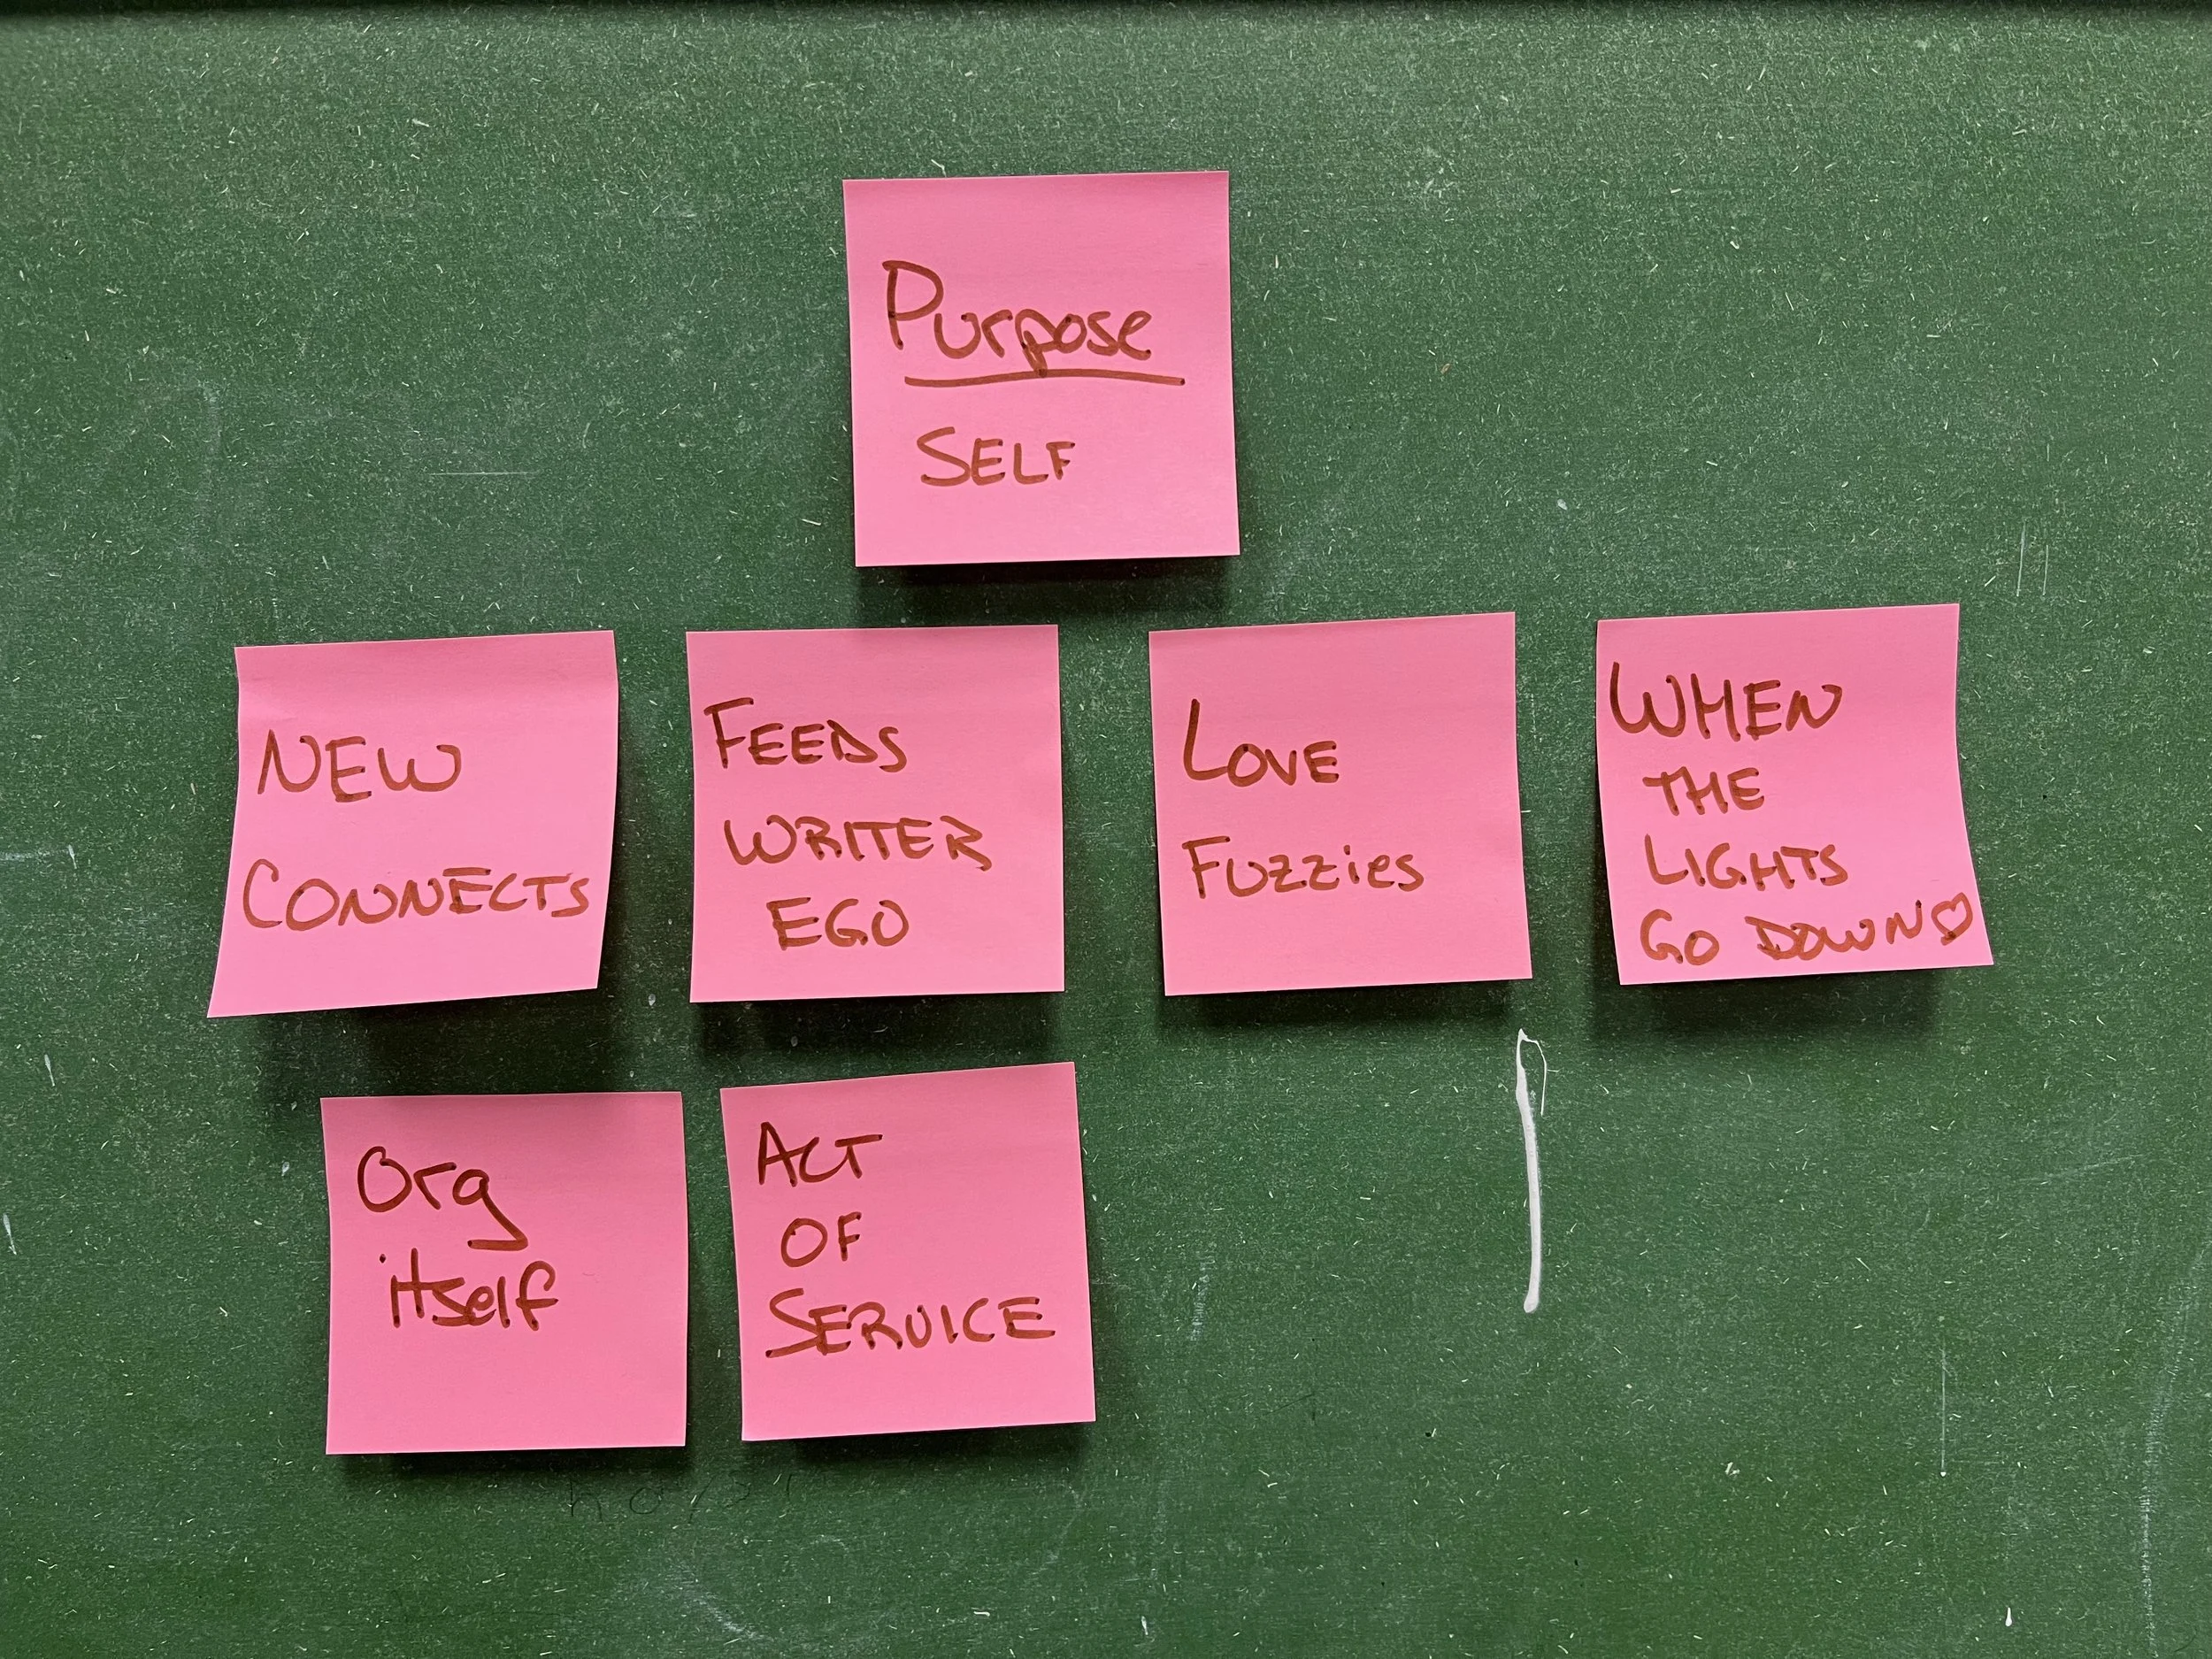 Purpose
SELF
NEW
CONNECTS
FEEDS
WRITER
EGO
LOVE
FUZZies
WHEN
THE
LIGHTS
GO DOWN♡
Org
itself
ACT
OF
SERVICE